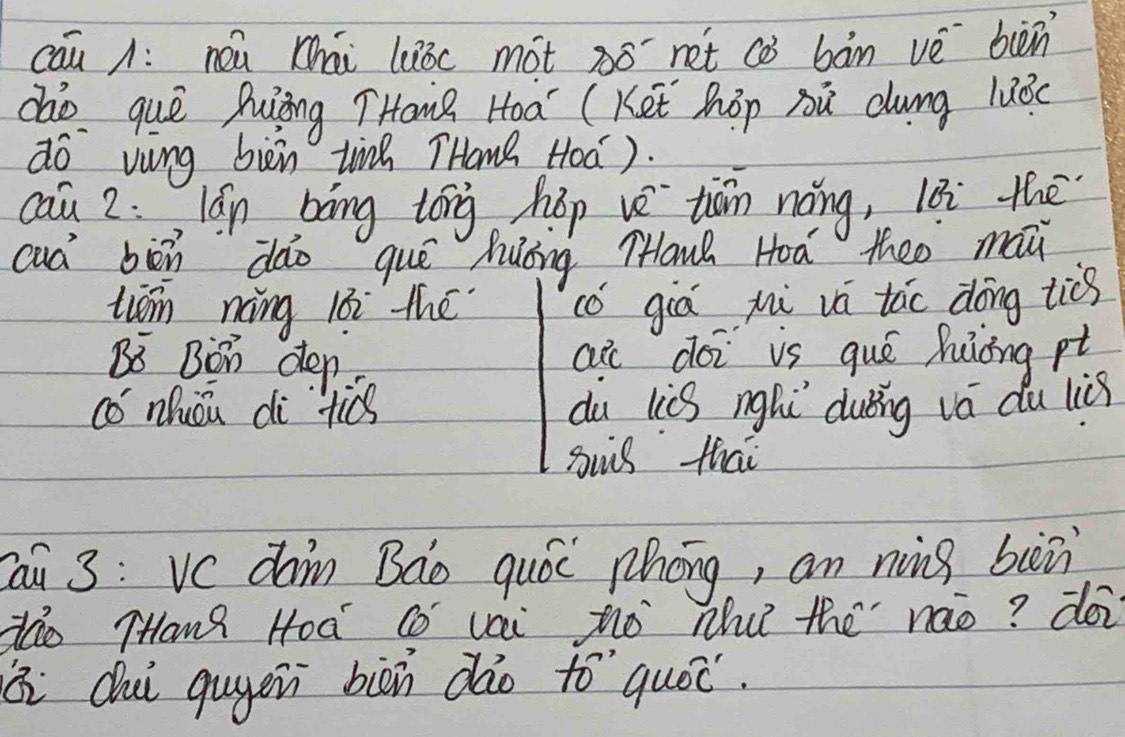 câu 1: nêu khái lược một số nét cơ bản về biển
đảo quê hương THanh Hoá (Kết hợp sử dụng lược
đồ vùng biển tỉnh THanh Hoá).
câu 2: lập bảng tổng hợp về tiềm năng, lợi thế
của biển đảo quê hương THanh Hoá theo mẫu
tiềm năng lợi thế
Bờ Biển đẹp
có nhiều di tích
có giá trị và tác động tích
cực đối vs quê hương pt
du lịch nghỉ dưỡng và du lịch
sinh thái
Câu 3: VC đảm Bảo quốc phòng, an ninh biển
đảo THanh Hoá có vai trò như thế nào? đối
với chủ quyền biển đảo tổ quốc.